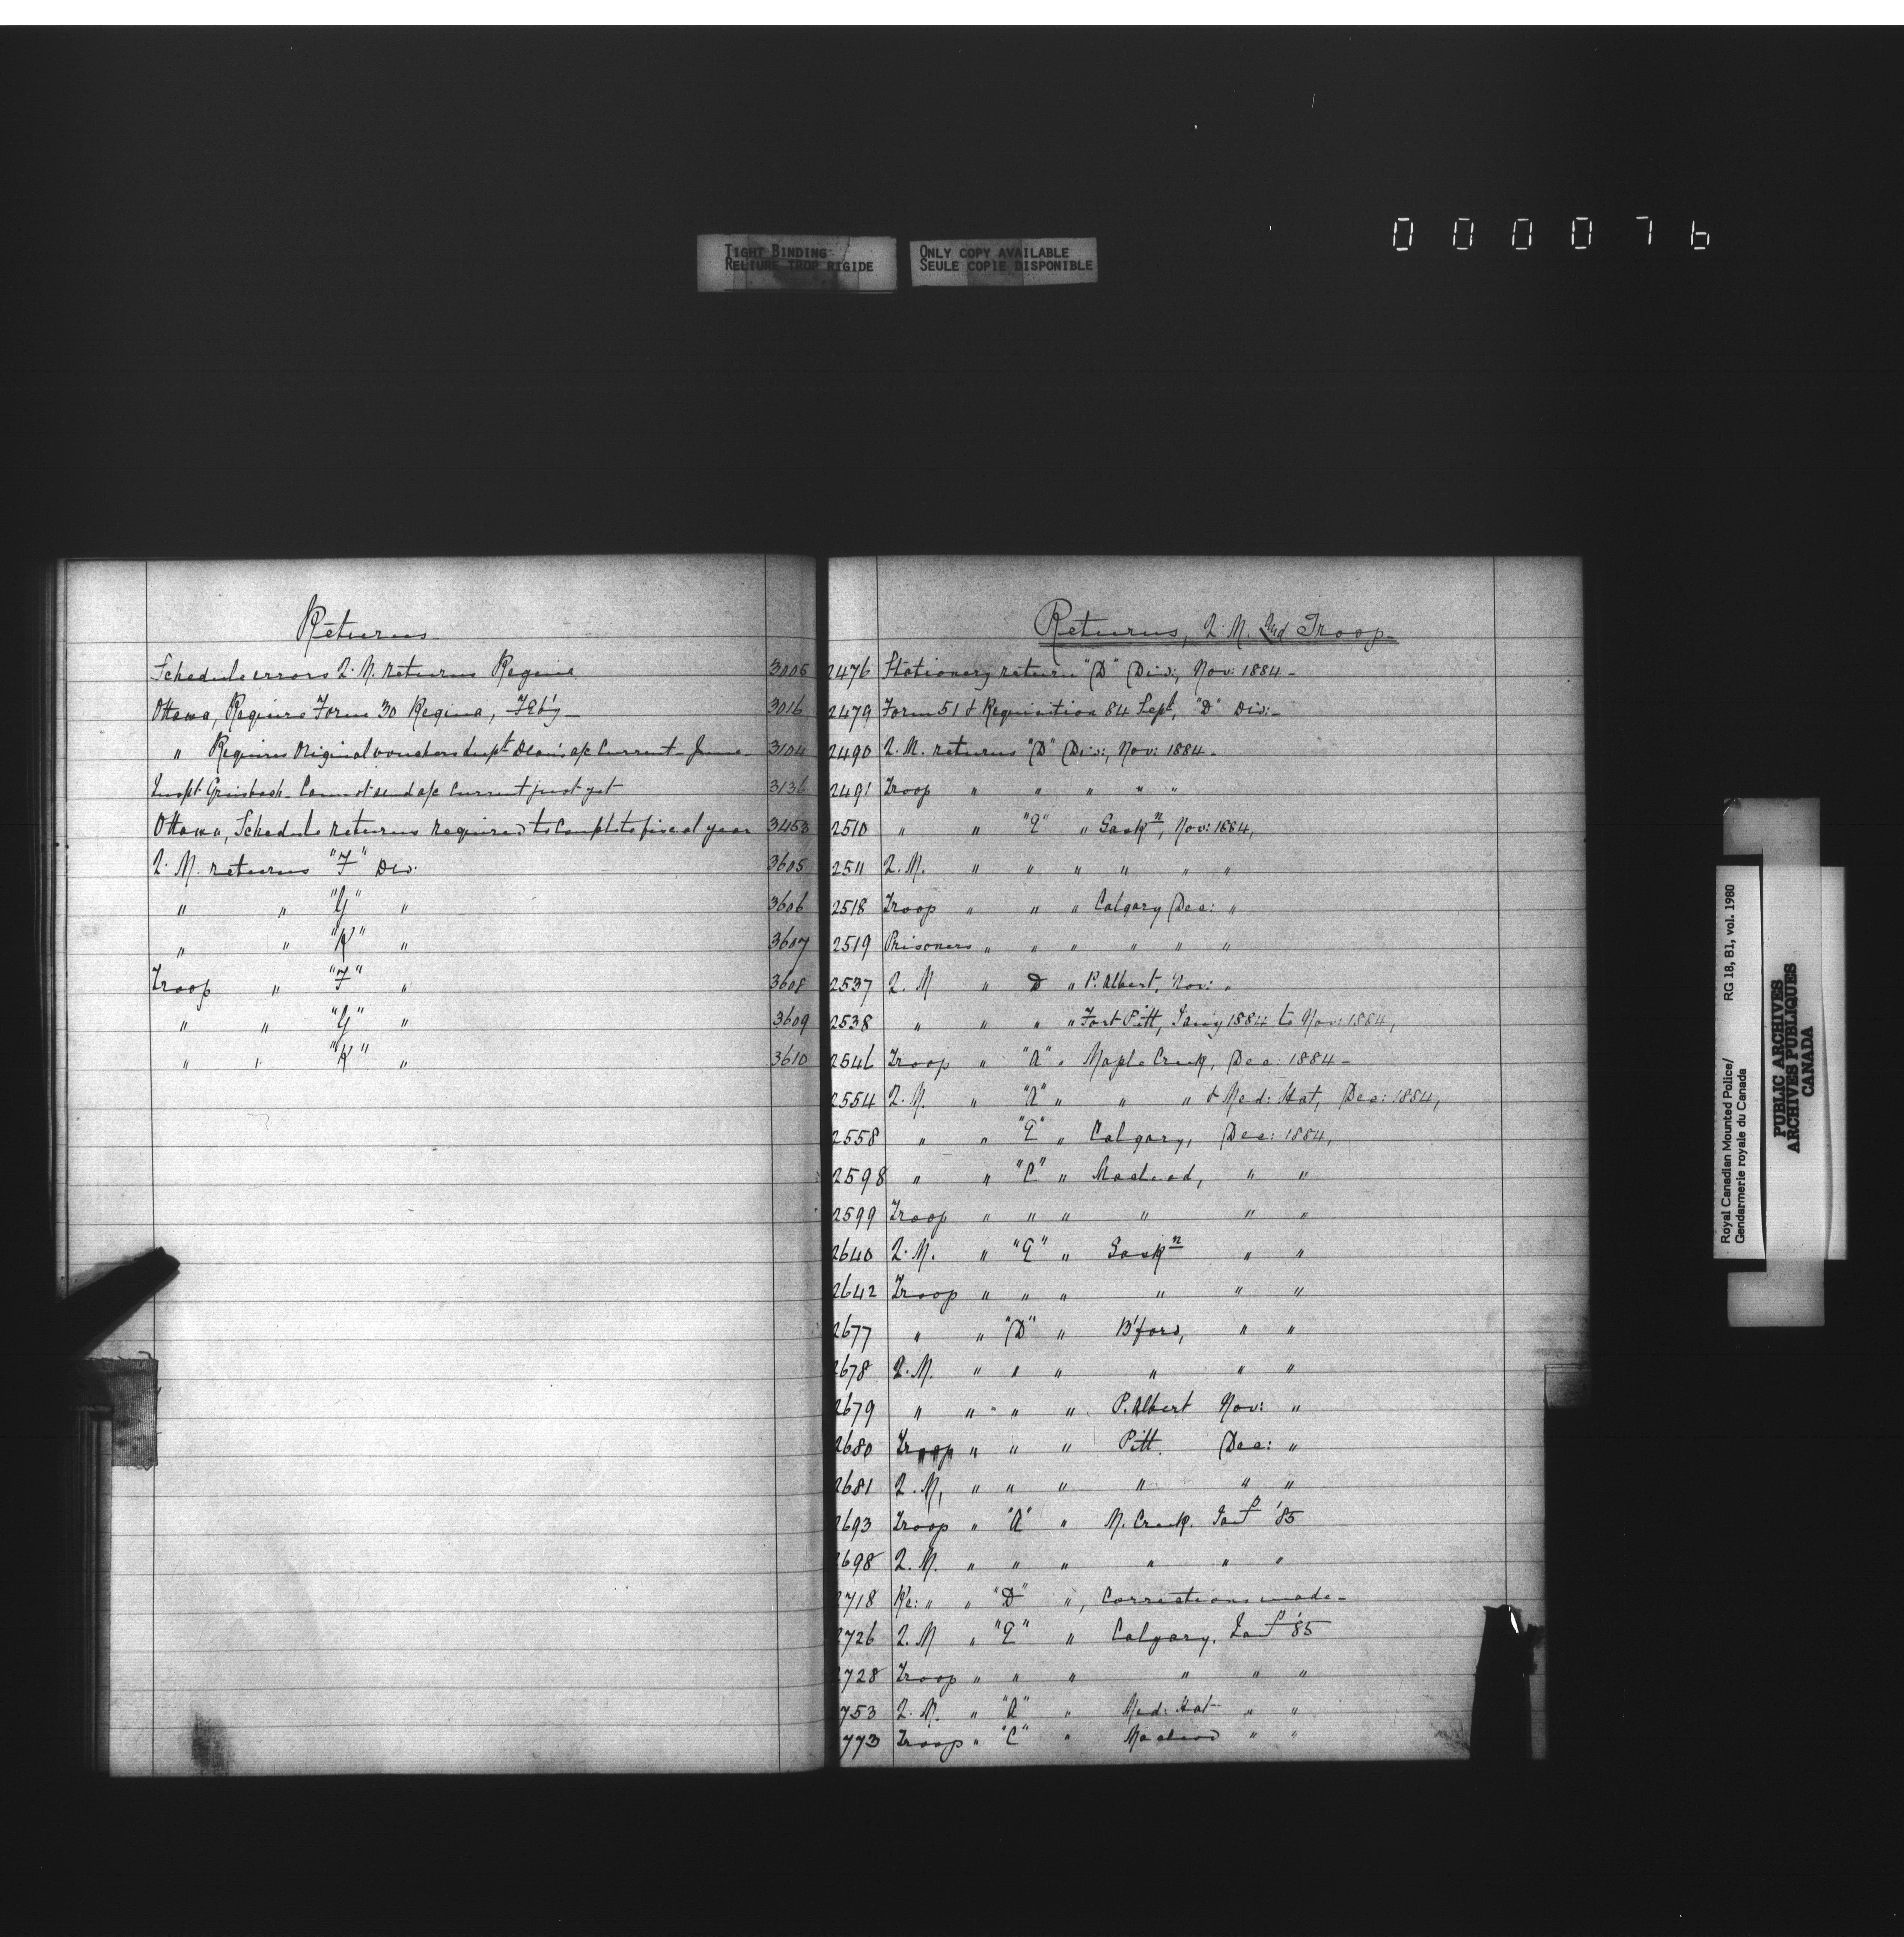 TIGHT BINDING
RELIURE TROP RIGIDE
ONLY COPY AVAILABLE
SEULE COPIE DISPONIBLE
000076
Returns
Schedule errors Q. M. returns Regina 3005
Ottawa, Require Form 30 Regina, Feb'y 3016
" Requires Original vouchers Supt Dean's a/c Current June 3104
Inspt Griesbach Cannot send a/c Current just yet 3136
Ottawa, Schedule returns required to Complete fiscal year 3453
Q. M. returns "F" Div. 3605
" " "G" " 3606
" " "K" " 3607
Troop " "F" " 3608
" " "G" " 3609
" " "K" " 3610
Returns, Q. M. and Troop
2476 Stationery return "D" Div:, Nov: 1884 -
2479 Form 51 & Requisition 84 Sept, "D" Div: -
2490 Q. M. returns "D" Div:, Nov: 1884 -
2491 Troop " " " " "
2510 " " "E" " Saskn, Nov: 1884,
2511 Q. M. " " " " " "
2518 Troop " " " Calgary Dec: "
2519 Prisoners " " " " " "
2537 Q. M " D " P. Albert, Nov: "
2538 " " " " Fort Pitt, Jan'y 1884 to Nov: 1884,
2546 Troop " "A" " Maple Creek, Dec: 1884 -
2554 Q. M. " "A" " " " & Med: Hat, Dec: 1884,
2558 " " "E" " Calgary, Dec: 1884,
2598 " " "C" " Macleod, " "
2599 Troop " " " " " "
2640 Q. M. " "E" " Saskn " "
2642 Troop " " " " " "
2677 " " "D" " B'ford, " "
2678 Q. M. " " " " " "
2679 " " " " P. Albert Nov: "
2680 Troop " " " Pitt. Dec: "
2681 Q. M, " " " " " "
2693 Troop " "A" " M. Creek. Jan '85
2698 Q. M. " " " " " "
2718 Re: " " "D" ", Corrections made -
2726 Q. M " "E" " Calgary, Jan '85
2728 Troop " " " " " "
753 Q. M. " "A" " Med: Hat " "
773 Troop " "C" " Macleod " "
Royal Canadian Mounted Police/ RG 18, B1, vol. 1980
Gendarmerie royale du Canada
PUBLIC ARCHIVES
ARCHIVES PUBLIQUES
CANADA